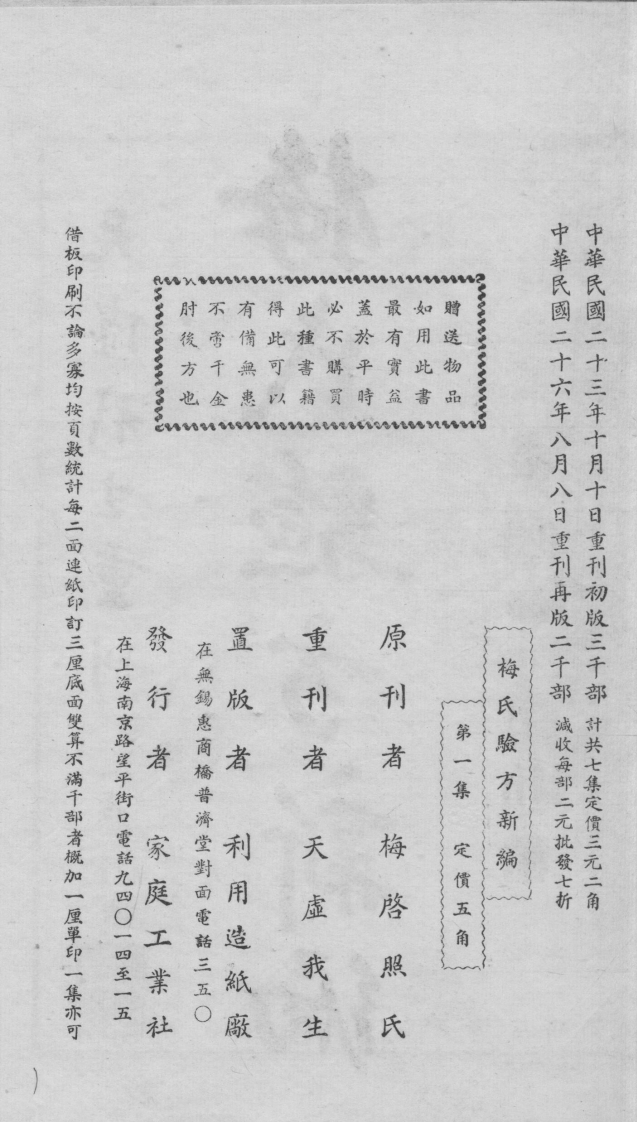 中華民國二十三年十月十日重刊初版三千部 計共七集定價三元二角
中華民國二十六年八月八日重刊再版二千部 減收每部二元批發七折
梅氏驗方新編
第一集 定價五角
贈送物品
如用此書
最有實益
蓋於平時
必不購買
此種書籍
得此可以
有備無患
不啻千金
肘後方也
原刊者 梅啓照氏
重刊者 天虛我生
置版者 利用造紙廠
在無錫惠商橋普濟堂對面電話三五〇
發行者 家庭工業社
在上海南京路望平街口電話九四〇一四至一五
借板印刷不論多寡均按頁數統計每二面連紙印訂三厘底面雙算不滿千部者概加一厘單印一集亦可